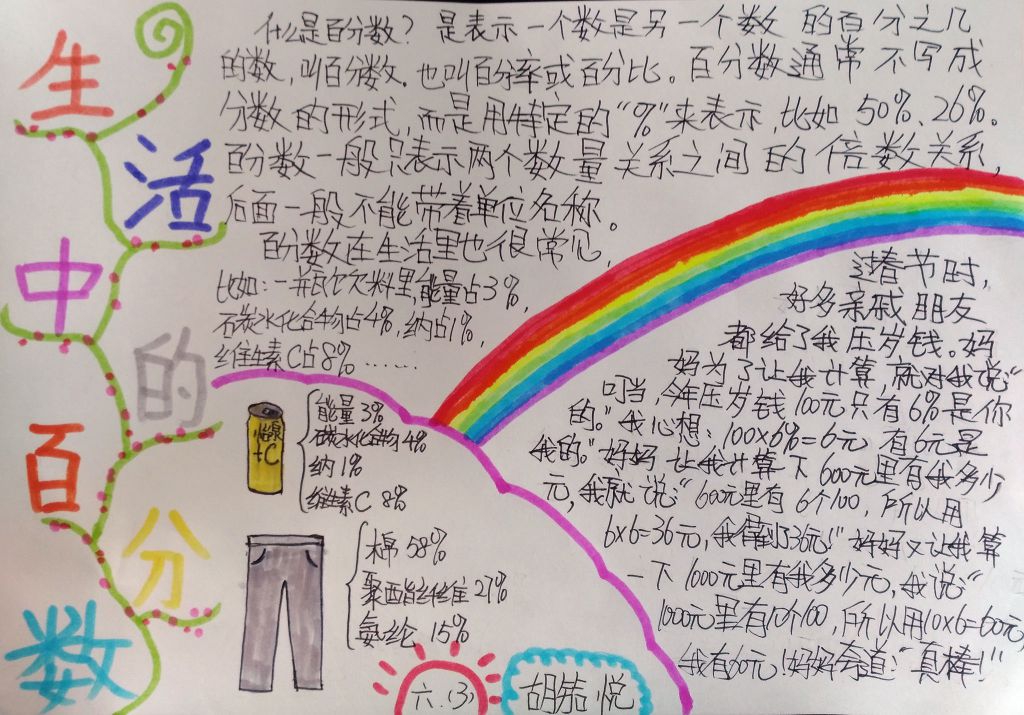 生活中的百分数
什么是百分数？是表示一个数是另一个数的百分之几
的数，叫百分数.也叫百分率或百分比。百分数通常不写成
分数的形式，而是用特定的“%”来表示，比如50%、26%。
百分数一般只表示两个数量关系之间的倍数关系，
后面一般不能带着单位名称。
百分数在生活里也很常见，
比如：一瓶饮料里，能量占3%，
石碳水化合物占4%，纳占1%，
维生素C占8%……
能量 3%
碳水化合物 4%
纳 1%
维生素C 8%
+C
棉 58%
聚酯纤维 27%
氨纶 15%
过春节时，
好多亲戚朋友
都给了我压岁钱。妈
妈为了让我计算，就对我说“
叮当，今年压岁钱100元只有6%是你
的。”我心想：100×6%=6元，有6元是
我的。”好妈让我计算一下600元里有我多少
元，我就说：“600元里有6个100，所以用
6×6=36元，我得到了36元！”好妈又让我算
一下1000元里有我多少元，我说：“
1000元里有10个100，所以用10×6=60元，
我有60元！好妈夸道：“真棒！”
六.(3)
胡恭悦